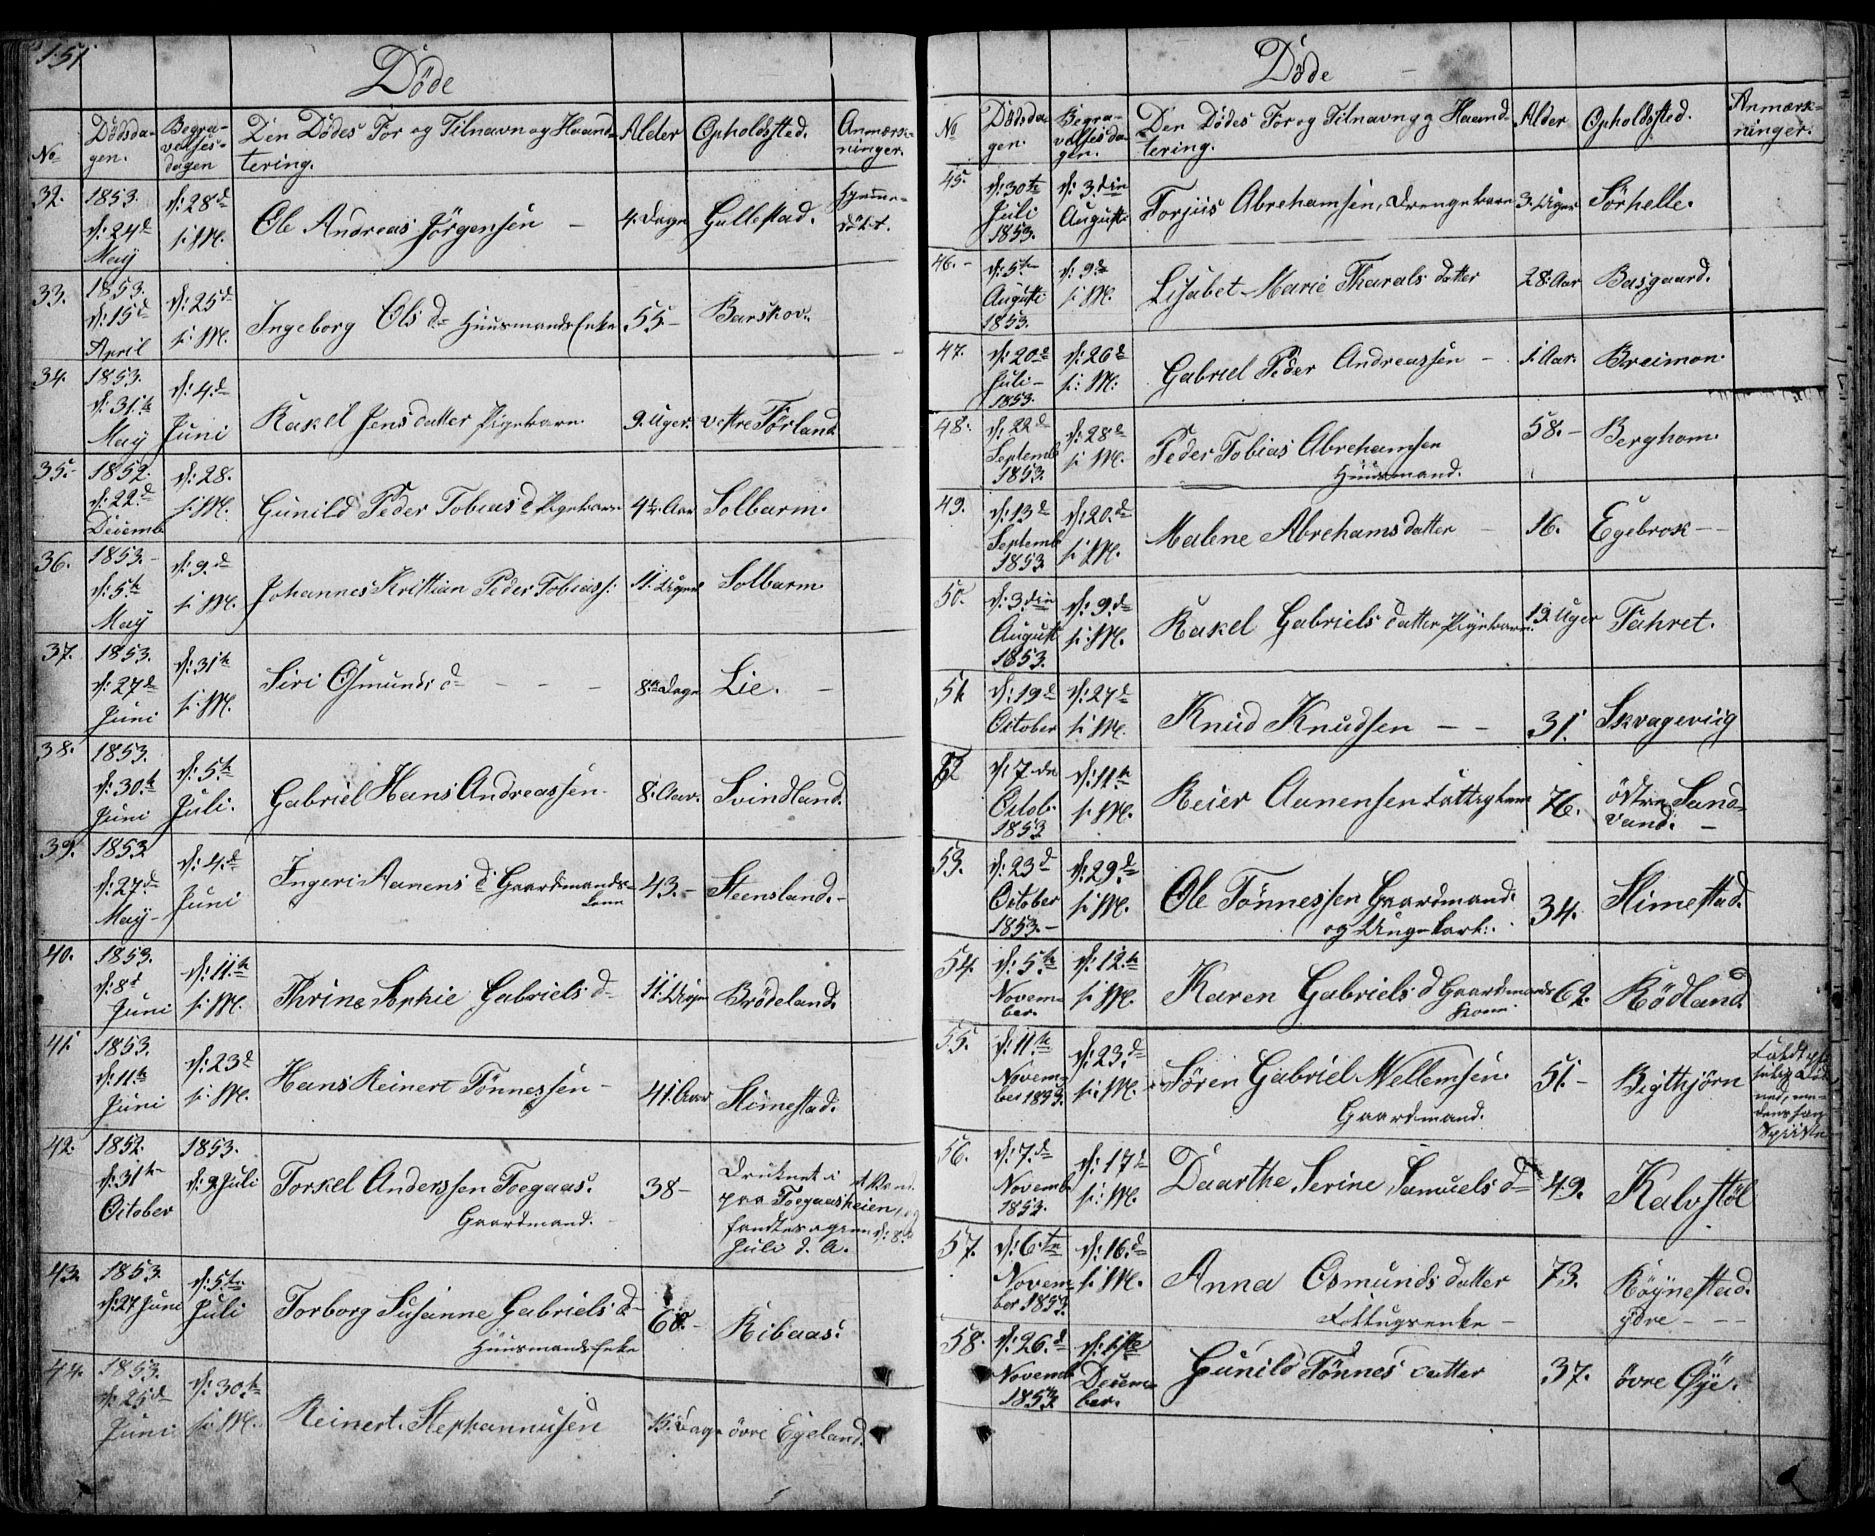 151
Döde
No
Dödsda-
gen.
Begra-
velses-
dagen
Den Dödes For og Tilnavn og Haand-
tering.
Alder
Opholdssted.
Anmærk-
ninger.
32.
1853.
d: 24d
May
d: 28d
s: M.
Ole Andreas Jörgensen –
4. Dage
Gullestad.
Hjemme-
döbt.
33.
1853.
d: 15d
April
d: 25d
s: M.
Ingeborg Ols d- Huusmands Enke
55–
Barskov.
34.
1853.
d: 31te
May
d: 4.d
Juni
Rakel Jens datter Pigebarn
9. Uger.
vestre Førland
35.
1852.
d: 22d
Decemb
d: 28.
s: M.
Gunild Peder Tobias d Pigebarn
4½ Aar
Solbarm.
36.
1853.–
d: 5te
May
d: 9.d
s: M.
Johannes Kristian Peder Tobiass:
11. Uger
Solbarm
37.
1853.
d: 27d
Juni
d: 31te
s: M.
Siri Osmunds d– – – –
8. Dage
Lie. –
38.
1853.
d: 30.te
Juni
d: 5.te
Juli.
Gabriel Hans Andreassen.
8. Aar.
Svindland.
39.
1853
d: 27d
May–
d: 4.d
Juni
Ingeri Aanens d Gaardmands-
kone
43.–
Steensland.–
40.
1853.
d: 8d
Juni
d: 11te
s: M.
Thrine Sophie Gabriels d–
11. Uger
Brödeland.
41.
1853.
d: 11te
Juni
d: 23d
s: M.
Hans Reinert Tönnessen –
41. Aar
Stimestad.
42.
1852.
d: 31te
October
1853.
d: 9 Juli
Torkel Anderssen Toegaas.
Gaardmand.
38–
Druknet i et Vand
paa Toegaasheien, og
fandtes igjen d: 8de
Juli d. A.
43.
1853.
d: 27 Juni
d: 5te
Juli
Torborg Susanne Gabriels d–
Huusmands Enke
68.–
Ribaas.
44.
1853.
d: 25d
Juni
d: 30.te
s: M.
Reinert Stephannusen
Dage
övre Egeland.
Döde
No
Dödsda-
gen.
Begra-
velsesda-
gen.
Den Dödes For og Tilnavn og Haand-
tering.
Alder
Opholdssted.
Anmærk-
ninger.
45.
d: 30te
Juli
1853.
d: 3. din
Augusti
Torjuis Abrehamsen, Drengebarn
3. Uger
Sörhelle.
46.–
d: 5te
Augusti
1853.
d: 9.de
s: M.
Lisabet Marie Tharals datter
28. Aar
Basgaard.
47.
d: 20.d
Juli–
1853.
d: 26d
s: M.
Gabriel Peder Andreassen –
1. Aar.
Breimon.
48.
d: 22d
Septemb
1853.
d: 28d
s: M.
Peder Tobias Abrehamsen
Huusmand.
58.–
Berghom.
49.
d: 13d
Septemb
1853
d: 20.de
s: M.
Malene Abrehams datter –
16.
Egebrok – –
50.
d: 3. din
August
1853.
d: 9.d
s: M.
Rakel Gabriels datter Pigebarn.
13. Uger
Fahret.
51.
d: 19d
October
d: 27d
s: M.
Knud Knudsen – –
31.
Skvageviig
52
d: 7de
Octob.
1853
d: 11te
s: M.
Reier Aanensen Fattiglem
76.
östre Sand-
vand. –
53.
d: 23d
October
1853.–
d: 29.d
s: M.
Ole Tönnessen Gaardmand.
og Ungekarl.
34.
Stimestad.
54.
d: 5te
Novem-
ber.
d: 12.te
s: M.
Karen Gabriels d Gaardmands
kone.
62.
Rödland.
55.
d: 11.te
Novem-
ber 1853.
d: 23.d
s: M.
Sören Gabriel Wellemsen.
Gaardmand.
51.–
Bigthjörn
56.
d: 7.d
Novemb
1853.
d: 17de
s: M.
Daarthe Serine Samuels d–
49.
Kalvstöl
57.
d: 6te
Novem-
ber 1853.
d: 16.d
s: M.
Anna Osmunds datter
Fattigenke –
73.
Röynestad.
ydre – – –
58.
d: 26.d
Novemb
1853
d: 1ste
Decem-
ber.
Gunild Tönnes datter
37.
övre Öye.